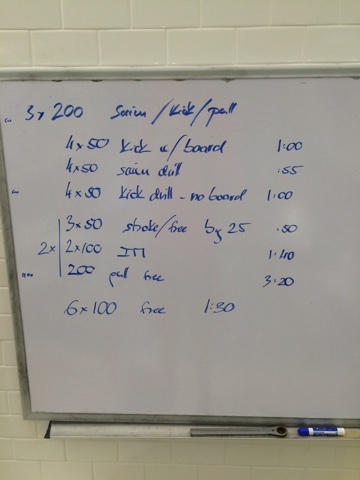 3x200 swim/kick/pull
4x50 kick w/board 1:00
4x50 swim drill :55
4x50 kick drill - no board 1:00
3x50 stroke/free by 25 :50
2x 2x100 IM 1:40
200 pull free 3:20
6x100 free 1:30